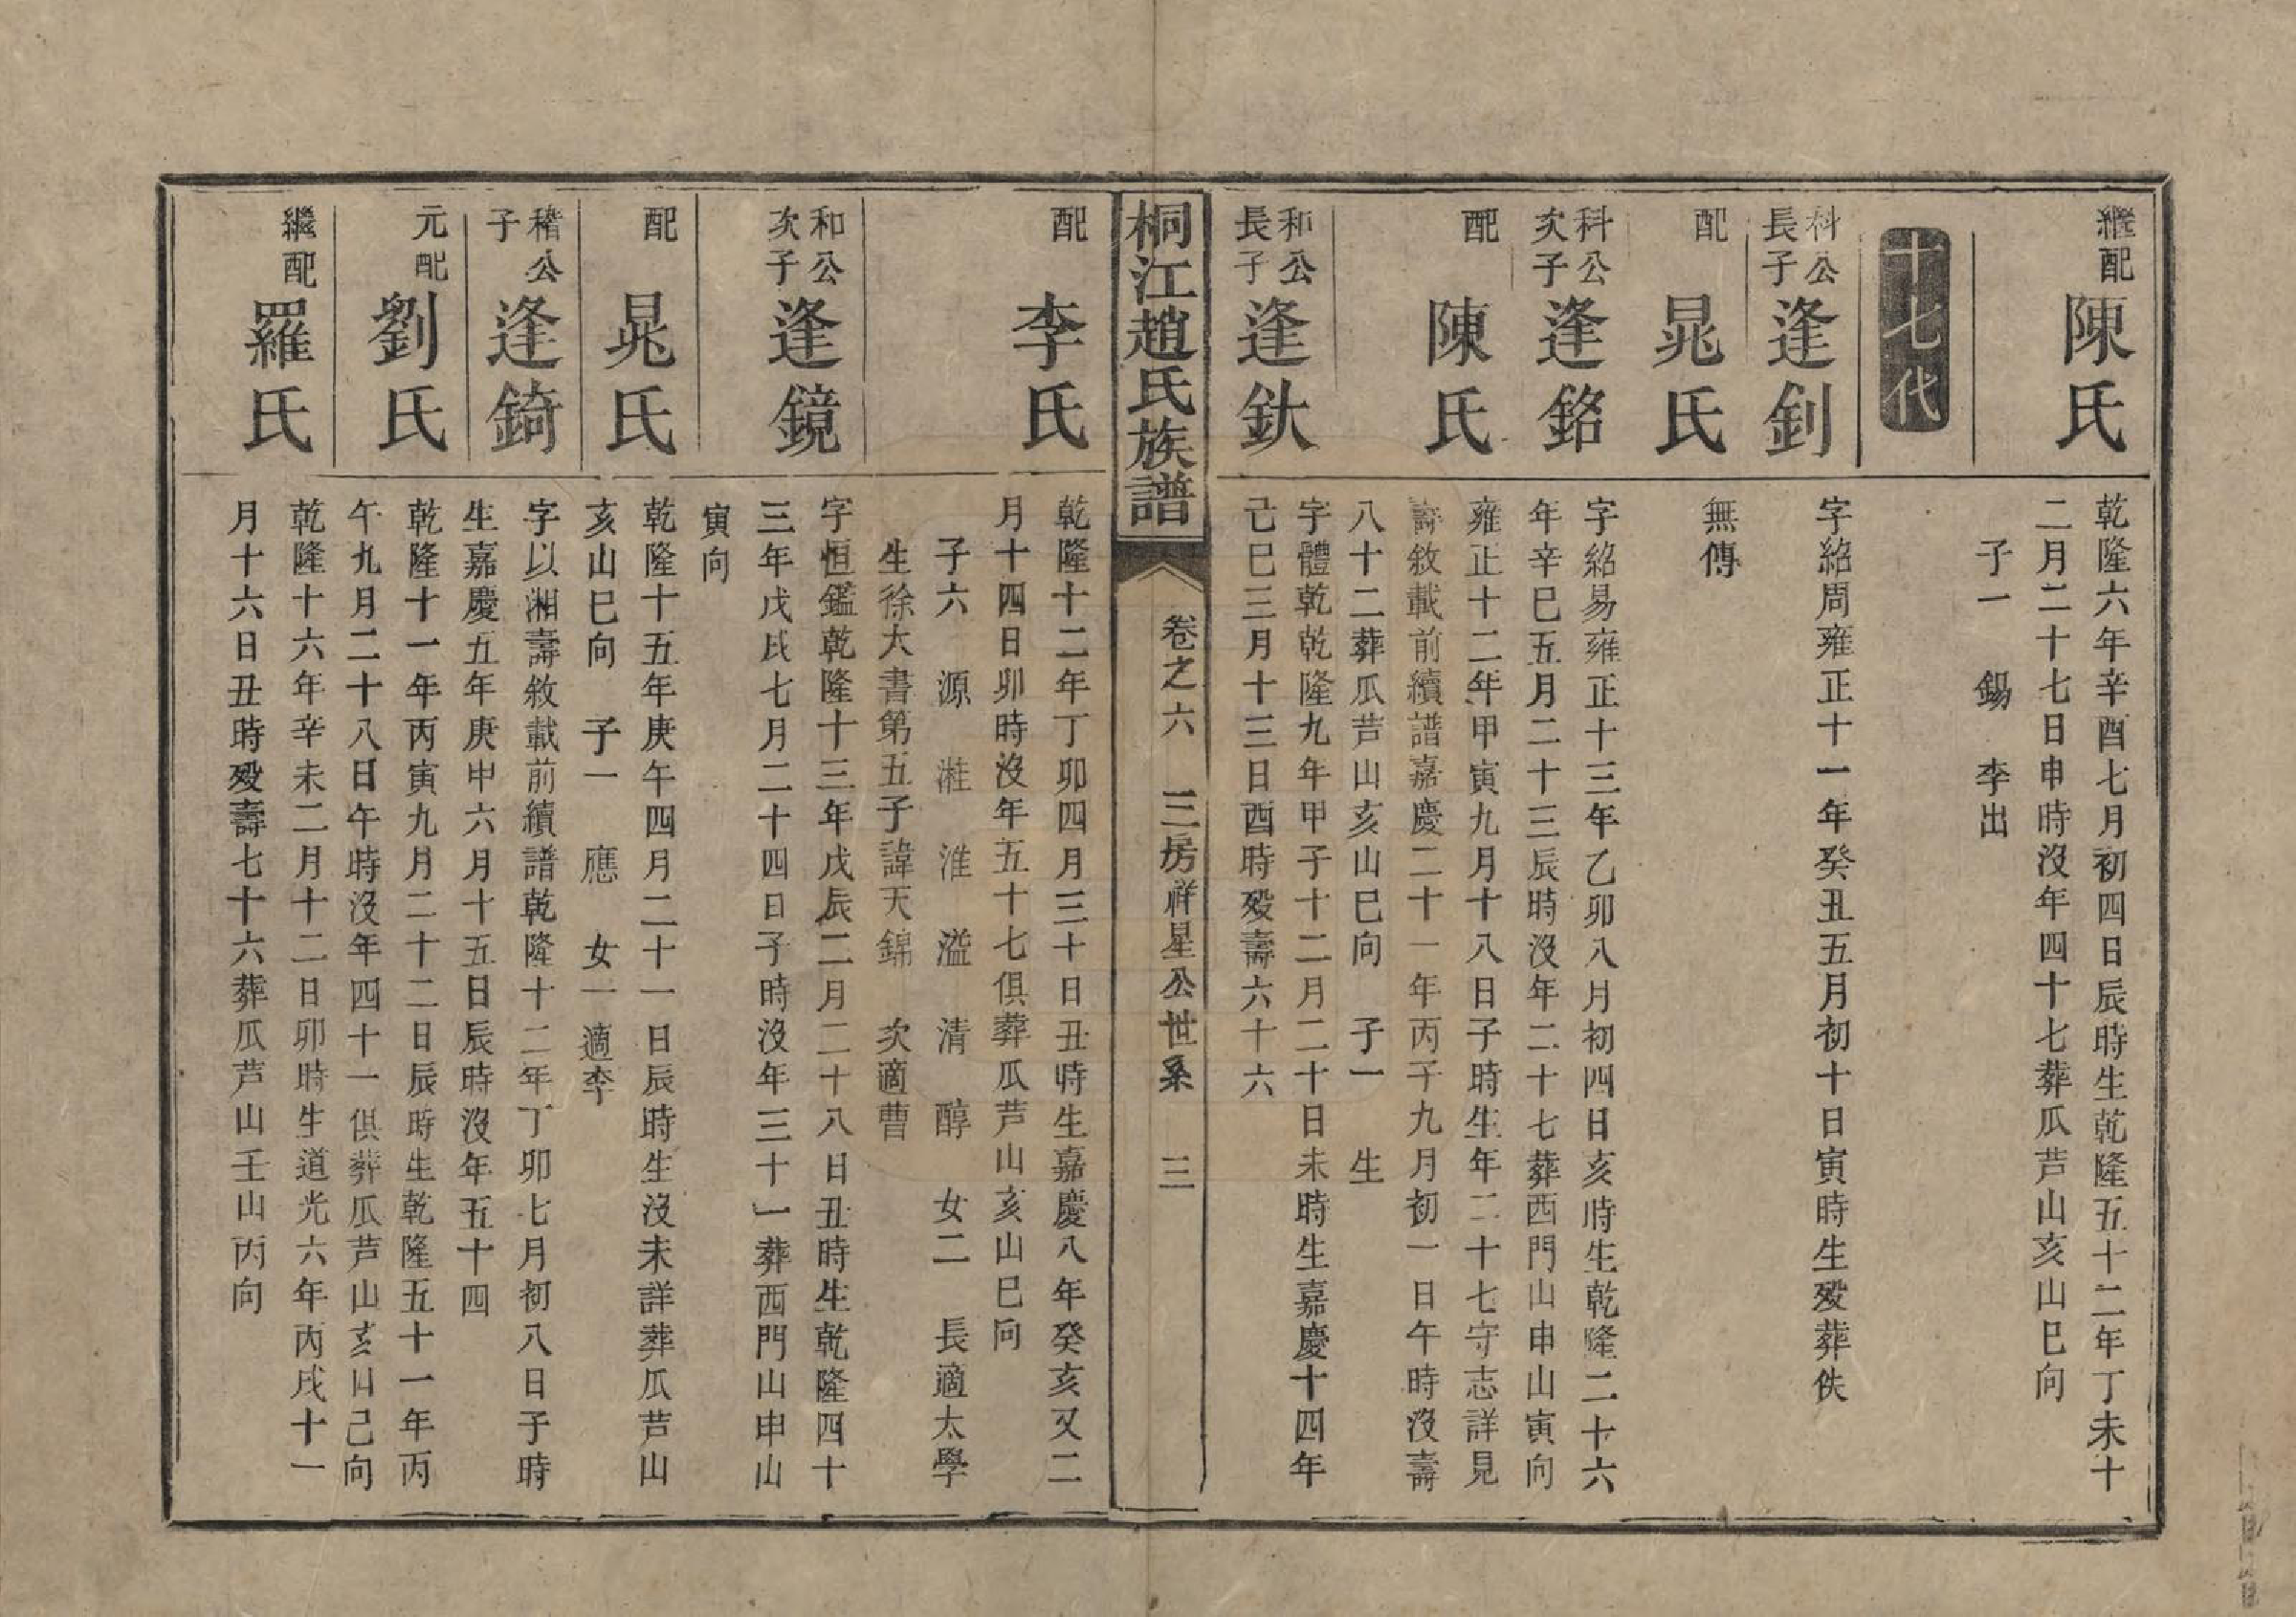 繼配
陳氏
乾隆六年辛酉七月初四日辰時生乾隆五十二年丁未十
二月二十七日申時沒年四十七葬瓜芦山亥山巳向
子一 錫 李出
十七代
科公
長子
逢釗
字紹周雍正十一年癸丑五月初十日寅時生殁葬佚
配
晁氏
無傳
科公
次子
逢銘
字紹易雍正十三年乙卯八月初四日亥時生乾隆二十六
年辛巳五月二十三辰時沒年二十七葬西門山申山寅向
配
陳氏
雍正十二年甲寅九月十八日子時生年二十七守志詳見
壽敘載前續譜嘉慶二十一年丙子九月初一日午時沒壽
八十二葬瓜芦山亥山巳向 子一 生
和公
長子
逢釱
字體乾乾隆九年甲子十二月二十日未時生嘉慶十四年
己巳三月十三日酉時殁壽六十六
桐江趙氏族譜
卷之六 三房祥星公世系 三
配
李氏
乾隆十二年丁卯四月三十日丑時生嘉慶八年癸亥又二
月十四日卯時沒年五十七俱葬瓜芦山亥山巳向
子六 源 淮 溢 清 醇 女二 長適太學
生徐大書第五子諱天錦 次適曹
和公
次子
逢鏡
字恒鑑乾隆十三年戊辰二月二十八日丑時生乾隆四十
三年戊戌七月二十四日子時沒年三十一葬西門山申山
寅向
配
晁氏
乾隆十五年庚午四月二十一日辰時生沒未詳葬瓜芦山
亥山巳向 子一 應 女一適李
稽公
子
逢錡
字以湘壽敘載前續譜乾隆十二年丁卯七月初八日子時
生嘉慶五年庚申六月十五日辰時沒年五十四
元配
劉氏
乾隆十一年丙寅九月二十二日辰時生乾隆五十一年丙
午九月二十八日午時沒年四十一俱葬瓜芦山亥山己向
繼配
羅氏
乾隆十六年辛未二月十二日卯時生道光六年丙戌十一
月十六日丑時殁壽七十六葬瓜芦山壬山丙向